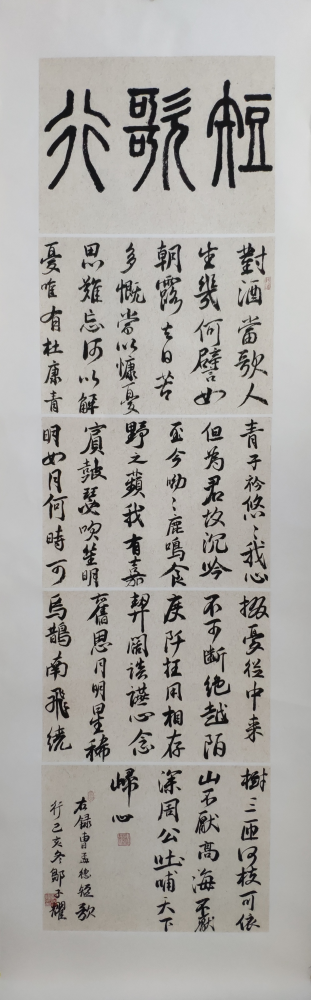 短歌行
對酒當歌人
生幾何譬如
朝露去日苦
多慨當以慷憂
思難忘何以解
憂唯有杜康青
青子衿悠々我心
但為君故沉吟
至今呦々鹿鳴食
野之蘋我有嘉
賓鼓瑟吹笙明
明如月何時可
掇憂從中来
不可斷绝越陌
度阡枉用相存
契闊談讌心念
舊恩月明星稀
烏鵲南飛繞
樹三匝何枝可依
山不厭高海不厭
深周公吐哺天下
歸心
右錄曹孟德短歌
行己亥冬鄒子耀